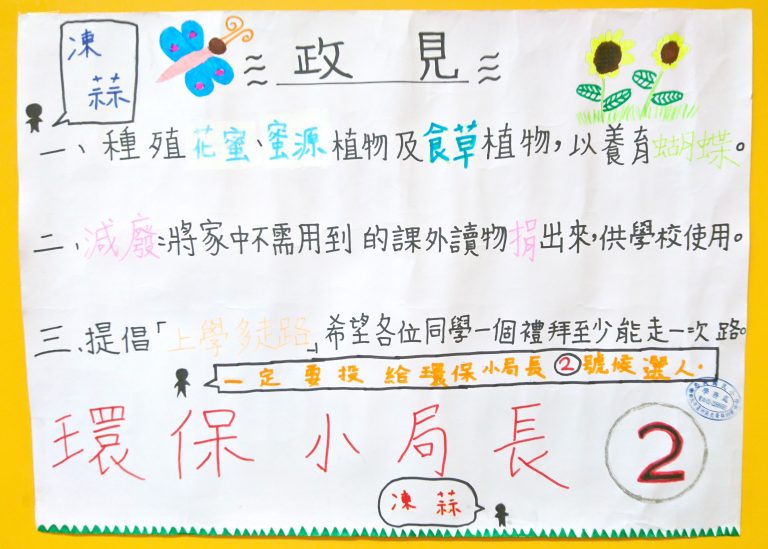 凍蒜
政見
一、種殖花蜜、蜜源植物及食草植物,以養育蝴蝶。
二、減廢:將家中不需用到的課外讀物捐出來,供學校使用。
三、提倡「上學多走路」希望各位同學一個禮拜至少能走一次路。
一定要投給環保小局長②號候選人.
環保小局長 2
凍蒜